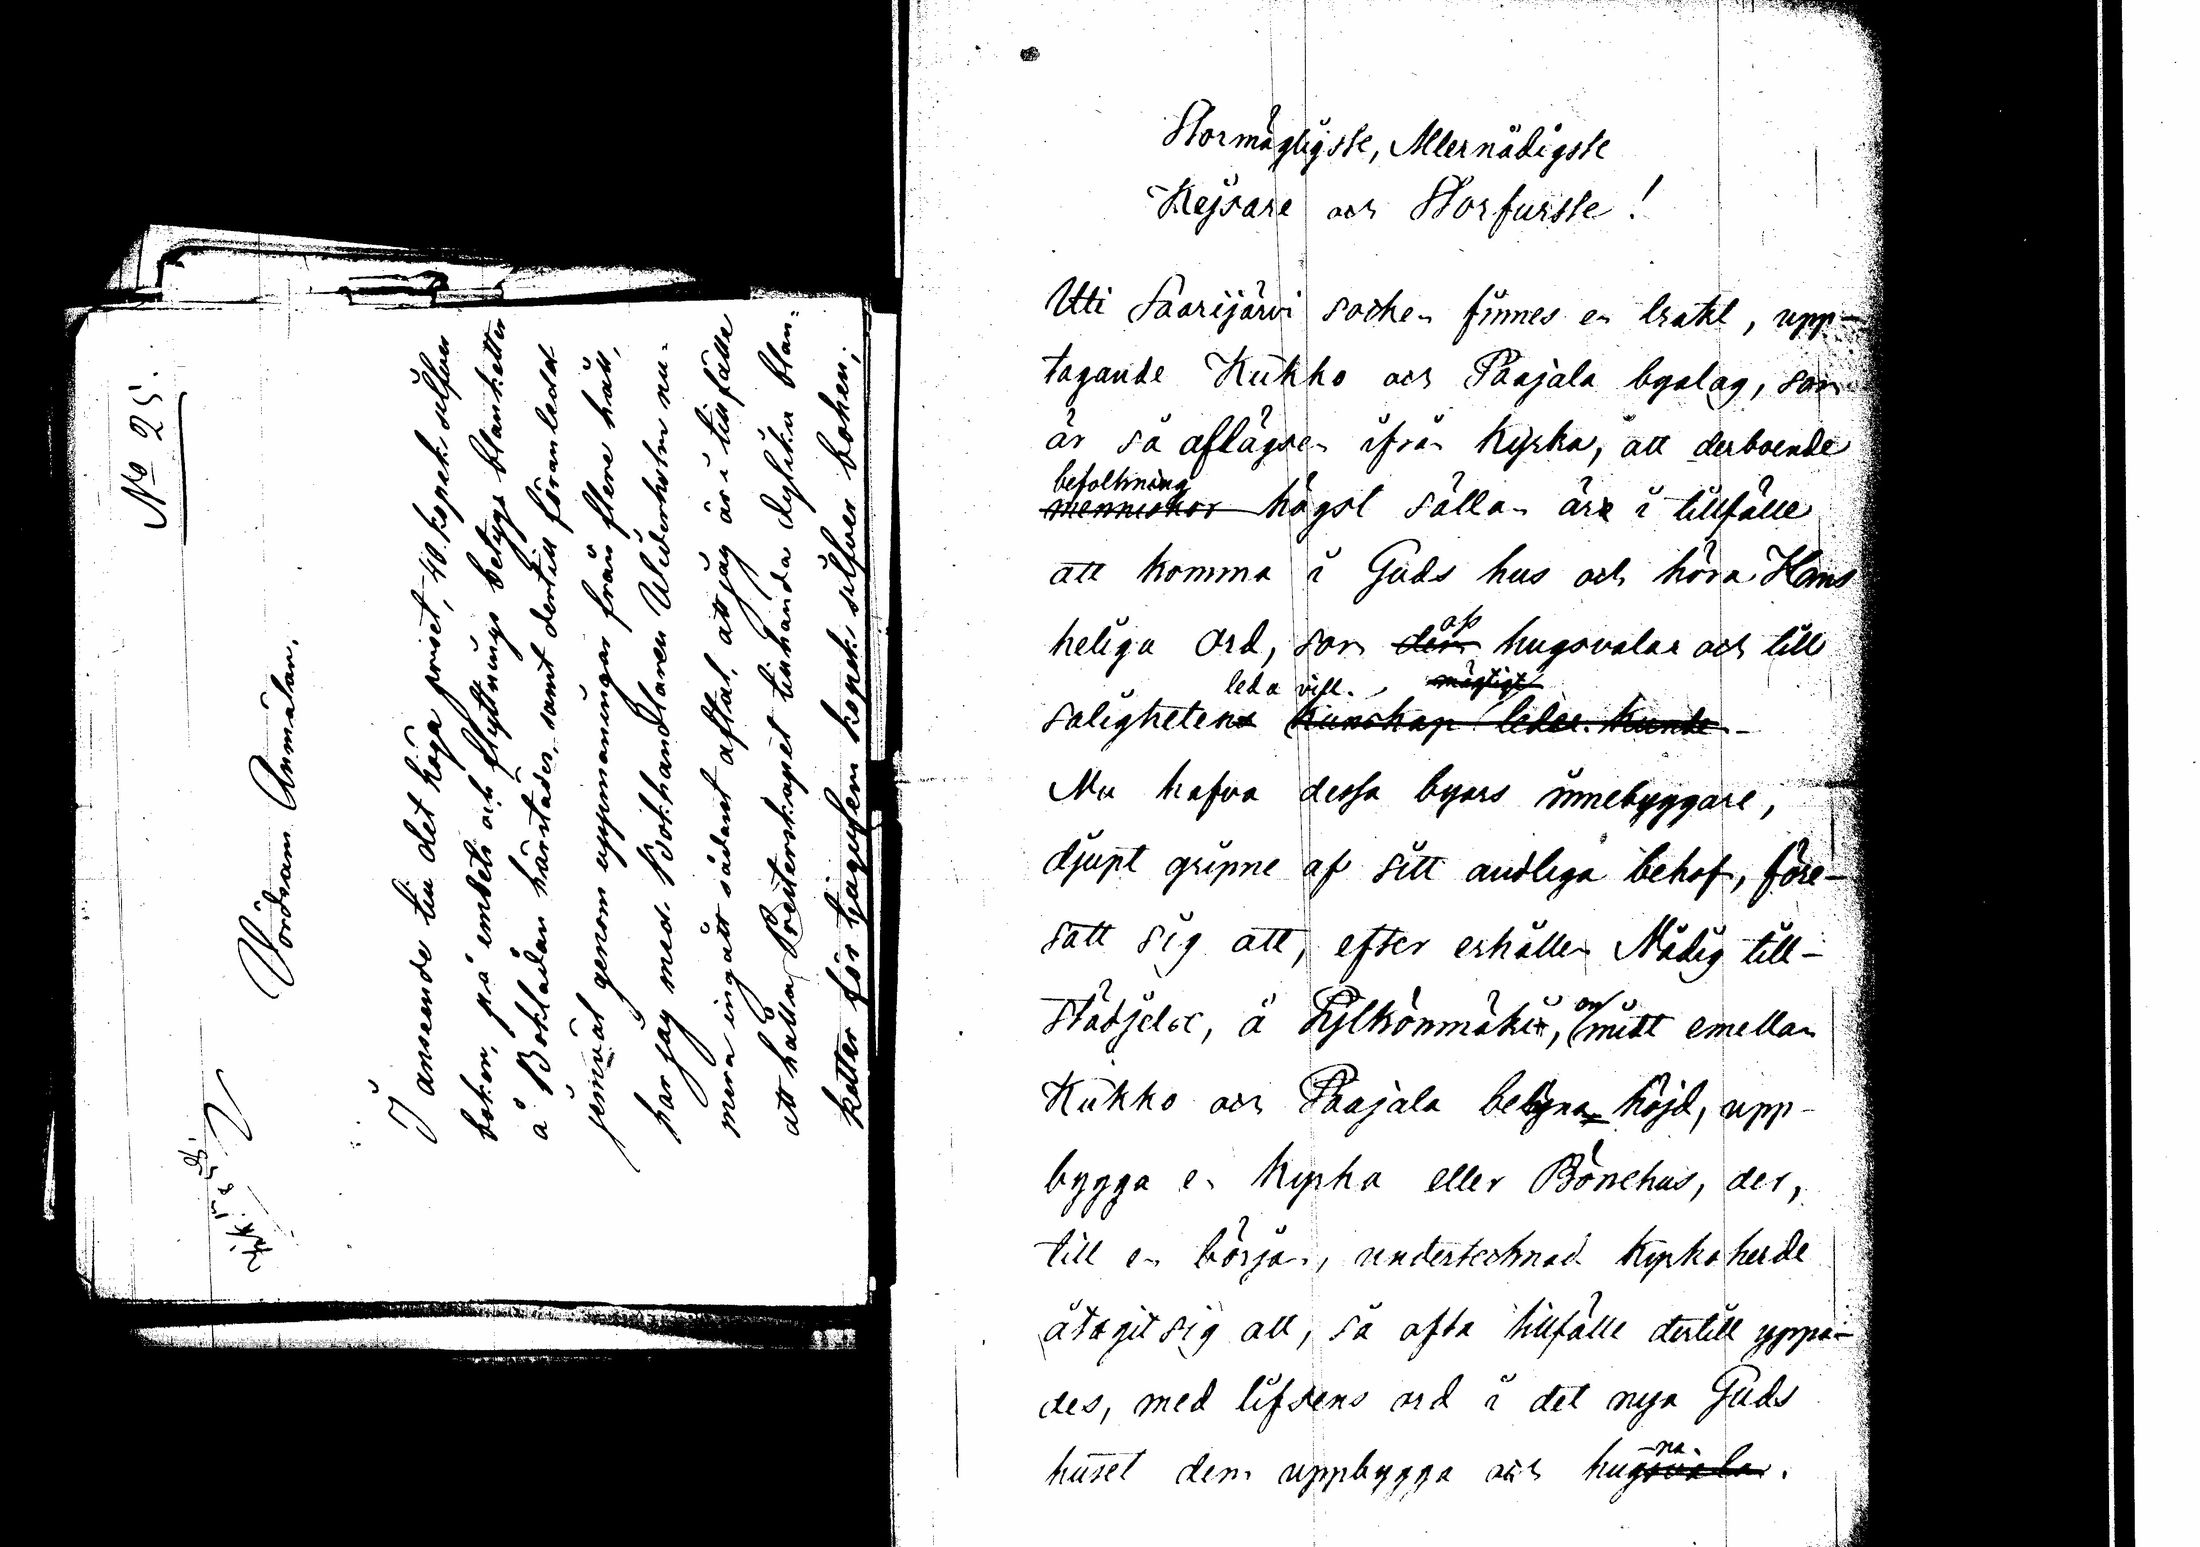 No 25.
Vördsam Anmälan.
I anseende till det höga priset, 40 kopek silfver
boken, på embets och flyttnings betygs blanketter
å Boklådan häntades, samt dertill föranledd
jemväl genom uppmaningar från flere håll,
har jag med Bokhandlaren Wederholm nu-
mera ingått sådant aftal, att jag är i tillfälle
att hålla Presterskapet tillhanda dylika blan-
ketter för tjugufem kopek silfver boken;
Stormägtigste, Allernådigste
Kejsare och Storfurste!
Uti Saarijärvi socken finnes en trakt, upp-
tagande Kukko och Paajala byalag, som
är så aflägsen ifrån Kyrka, att derboende
befolkning
menniskor högst sällan äre i tillfälle
att komma i Guds hus och höra Hans
heliga ord, som dem oss hugsvalar och till
leda vill. mägtigt
salighetens kunskap leder. kunde
Nu hafva dessa byars innebyggare,
djupt gripne af sitt andliga behof, före-
satt sig att, efter erhållen Nådig till-
städjelse, å Kylkönmäki, en mitt emellan
Kukko och Paajala belägna höjd, upp-
bygga en Kyrka eller Bönehus, der,
till en början, undertecknad Kyrkoherde
åtagit sig att, så ofta tillfälle dertill yppa-
des, med lifsens ord i det nya Guds
na
huset dem uppbygga och hugsvala.